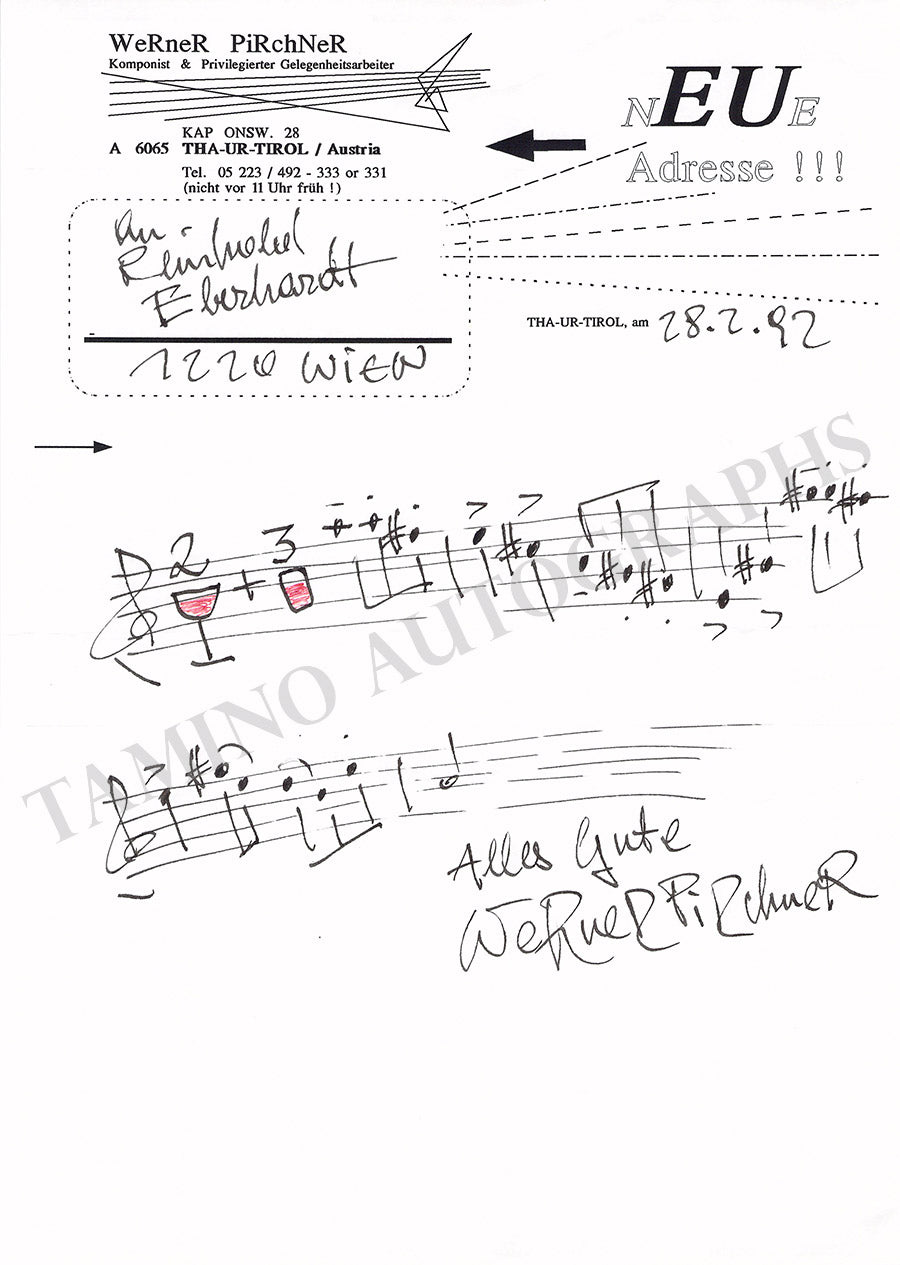 WeRneR PiRchNeR
Komponist & Privilegierter Gelegenheitsarbeiter
KAP ONSW. 28
A 6065 THA-UR-TIROL / Austria
Tel. 05 223 / 492 - 333 or 331
(nicht vor 11 Uhr früh !)
NEUE
Adresse !!!
An
Reinhold
Eberhardt
1220 WiEN
THA-UR-TIROL, am 28.2.92
2 + 3
Alles Gute
WeRneR PiRchneR
TAMINO AUTOGRAPHS